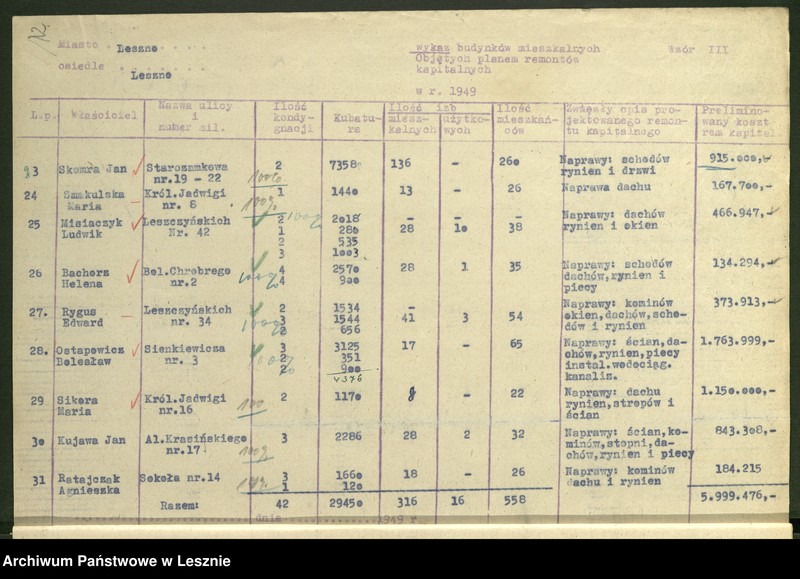 12.
Miasto Leszno
osiedle Leszno
wykaz budynków mieszkalnych
Objętych planem remontów
kapitalnych
w r. 1949
Wzór III
L.p. Właściciel Nazwa ulicy i numer mil. Ilość kondygnacji Kubatura Ilość izb mieszkalnych użytkowych Ilość mieszkańców Zwięzły opis projektowanego remontu kapitalnego Preliminowany koszt rem kapital.
23 Skomra Jan Starozamkowa 2 7358 136 - 260 Naprawy: schodów 915.000,-
nr.19 - 22 100% rynien i drzwi
24 Smakulska Król.Jadwigi 1 1440 13 - 26 Naprawa dachu 167.700,-
Maria nr. 8 100%
25 Misiaczyk Leszczyńskich 2 2018 - - - Naprawy: dachów 466.947,-
Ludwik Nr. 42 1 280 28 10 38 rynien i okien
100%
2 535
3 1003
26 Bachorz Bol.Chrobrego 4 2570 28 1 35 Naprawy: schodów 134.294,-
Helena nr.2 100% 4 900 dachów,rynien i
piecy
27. Rygus Leszczyńskich 2 1534 - Naprawy: kominów 373.913,-
Edward nr. 34 100% 3 1544 41 3 54 okien,dachów,scho-
2 656 dów i rynien
28. Ostapowicz Sienkiewicza 3 3125 17 - 65 Naprawy: ścian,da- 1.763.999,-
Bolesław nr. 3 100% 2 351 chów,rynien,piecy
2 900 instal.wodociąg.
4376 kanaliz.
29 Sikora Król.Jadwigi 2 1170 8 - 22 Naprawy: dachu 1.150.000,-
Maria nr.16 100 rynien,stropów i
ścian
30 Kujawa Jan Al.Krasińskiego 3 2286 28 2 32 Naprawy: ścian,ko- 843.308,-
nr.17 100% minów,stopni,da-
chów,rynien i piecy
31 Ratajczak Sokoła nr.14 3 1660 18 - 26 Naprawy: kominów 184.215
Agnieszka 1 120 dachu i rynien
Razem: 42 29450 316 16 558 5.999.476,-
dnia 1949 r.
Archiwum Państwowe w Lesznie